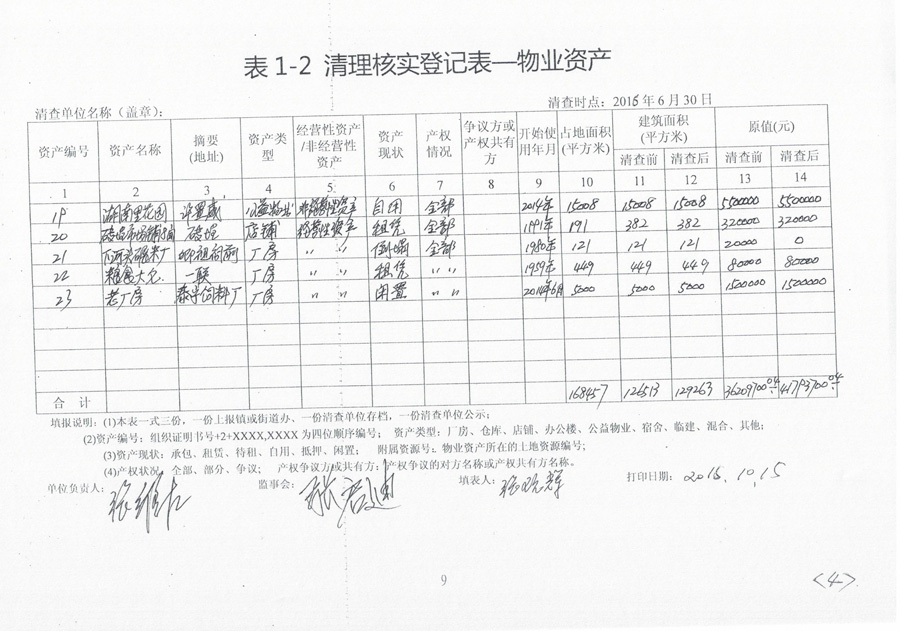 表 1-2 清理核实登记表—物业资产
清查单位名称（盖章）：
清查时点：2015 年 6 月 30 日
资产编号 资产名称 摘要(地址) 资产类型 经营性资产/非经营性资产 资产现状 产权情况 争议方或产权共有方 开始使用年月 占地面积(平方米) 建筑面积(平方米) 原值(元)
清查前 清查后 清查前 清查后
1 2 3 4 5 6 7 8 9 10 11 12 13 14
19 自用 全部 2014年 15008 15008 15008 550000 5500000
20 店铺 经营性资产 租凭 全部 1991年 191 382 382 320000 320000
21 厂房 〃 〃 倒塌 全部 1980年 121 121 121 20000 0
22 粮食大仓 一联 厂房 〃 〃 租凭 〃 〃 1959年 449 449 449 80000 80000
23 老厂房 饲料厂 厂房 〃 〃 闲置 〃 〃 2014年6月 5000 5000 5000 1500000 1500000
合 计 168457 126513 129263 36209700.04 41793700.04
填报说明：(1)本表一式三份，一份上报镇或街道办、一份清查单位存档，一份清查单位公示；
(2)资产编号：组织证明书号+2+XXXX,XXXX 为四位顺序编号； 资产类型：厂房、仓库、店铺、办公楼、公益物业、宿舍、临建、混合、其他；
(3)资产现状：承包、租赁、待租、自用、抵押、闲置； 附属资源号：物业资产所在的土地资源编号；
(4)产权状况：全部、部分、争议； 产权争议方或共有方：产权争议的对方名称或产权共有方名称。
单位负责人： 监事会： 填表人： 打印日期：2015.10.15
9
<4>